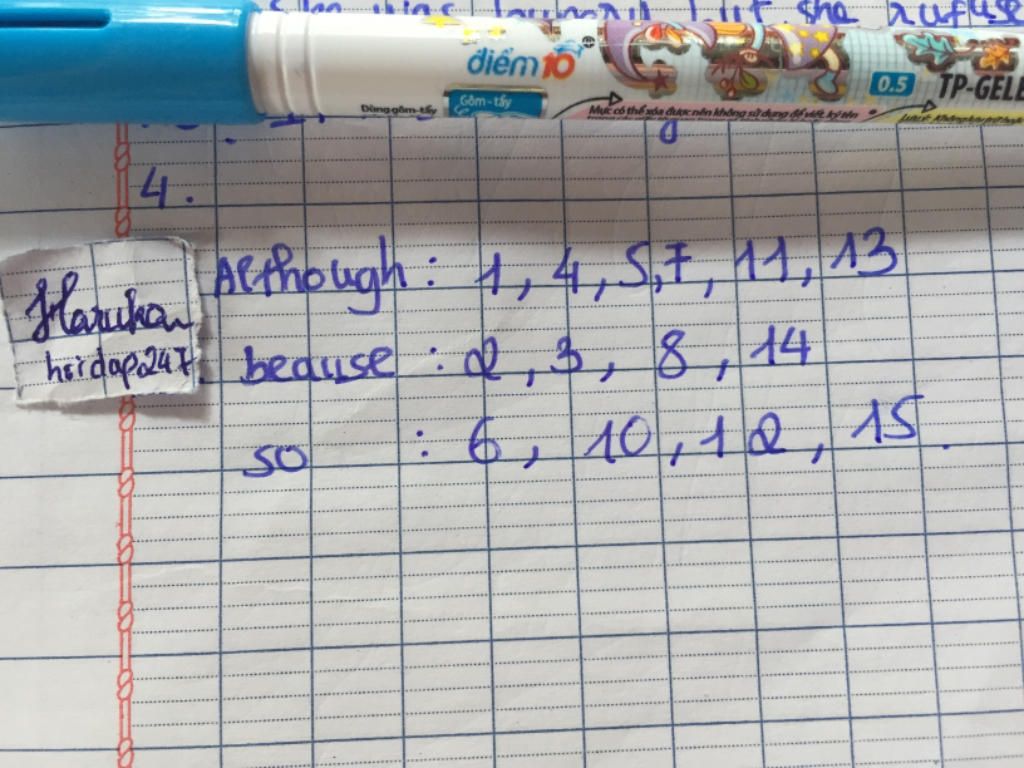 she rufuse
điểm 10
0.5 TP-GELE
Dùng gôm-tẩy Gôm-tẩy Mực có thể xóa được nên không sử dụng để viết, ký tên
4.
Although: 1, 4, 5, 7, 11, 13
Haruka
hoidap247. beause : 2, 3, 8, 14
so : 6, 10, 12, 15.